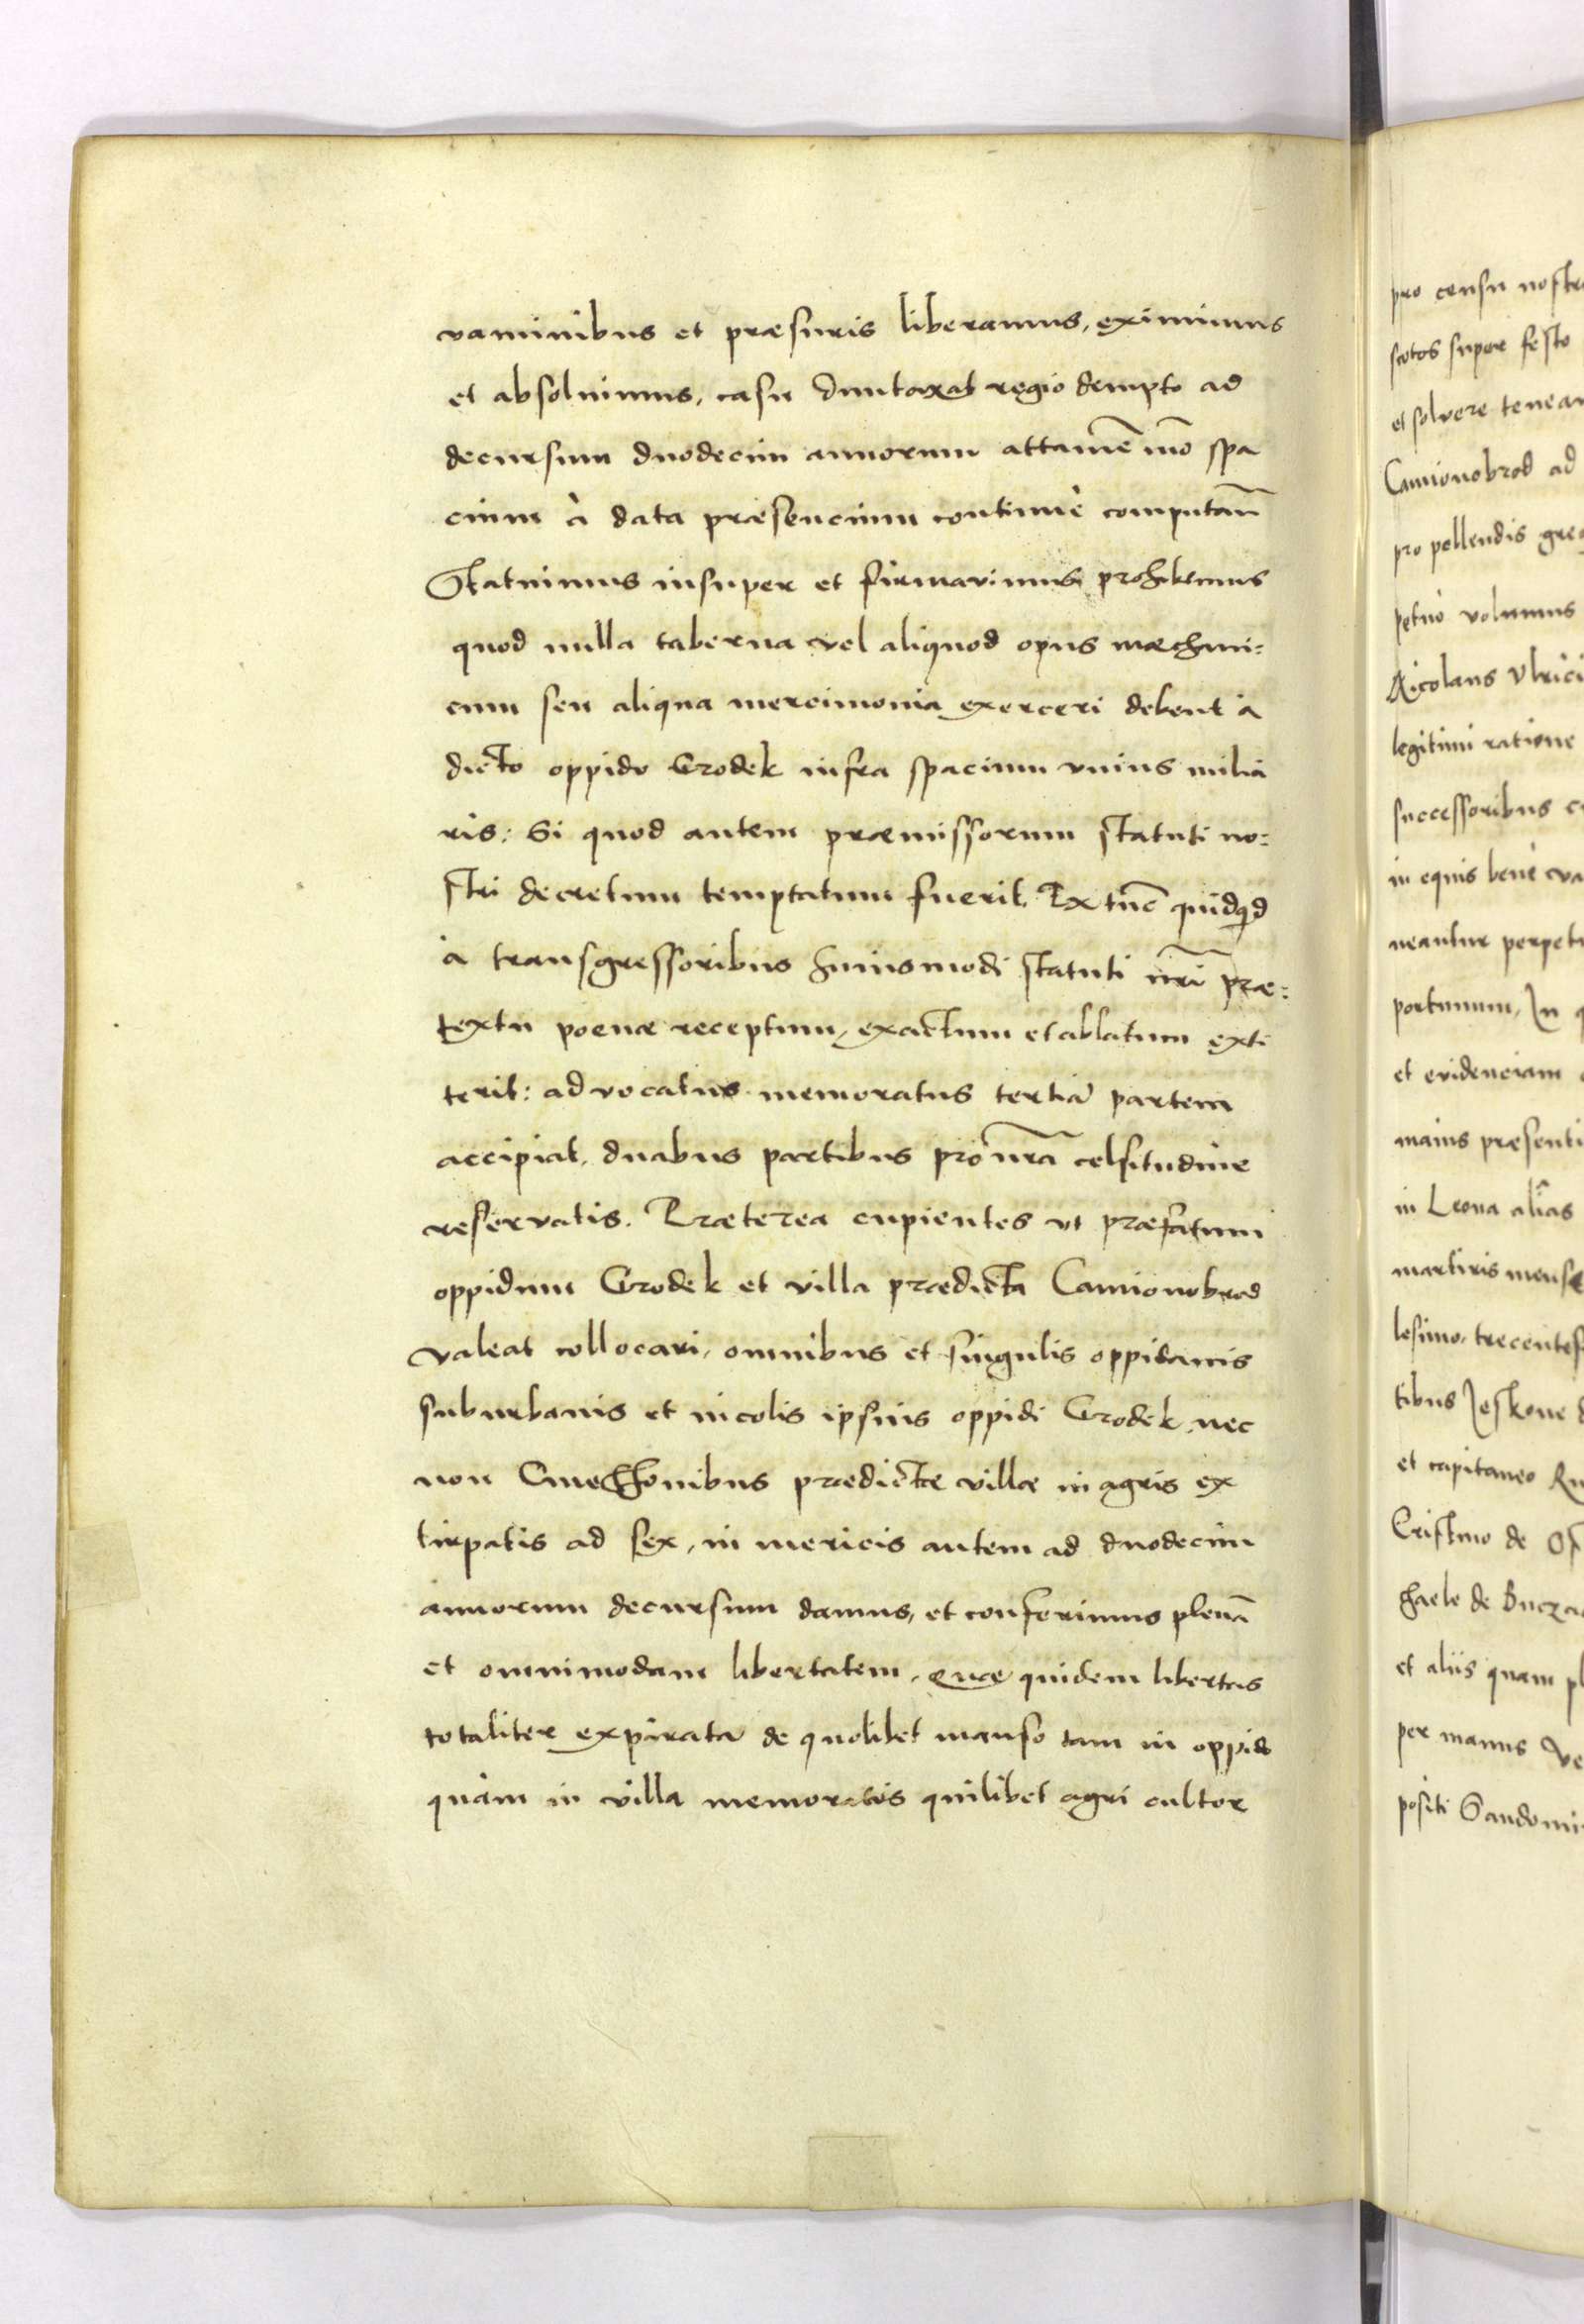 vaminibus et præsuris liberamus, eximimus
et absoluimus, casu duntaxat regio dempto ad
decursum duodecim annorum attamē mō spa
cium à data præsencium continuè computan̄
Statuimus insuper et firmavimus prohibemus
quod nulla taberna vel aliquod opus mæchani:
cum seu aliqua mercimonia exerceri debent à
dicto oppido Grodek infra spacium vnius milia
ris: Si quod autem præmissorum statuti no:
stri decretum temptatum fuerit, Ex tūc quidqd
à transgressoribus huiusmodi statuti nr̄i præ:
textu poenæ receptum, exactum et ablatum exti
terit: advocatus memoratus tertiā partem
accipiat, duabus partibus pro nr̄a celsitudine
reservatis. Præterea cupientes vt præfatum
oppidum Grodek et villa prædicta Camionobrod
valeat collocari, omnibus et singulis oppidanis
suburbanis et incolis ipsius oppidi Grodek, nec
non Cmethonibus prædictæ villæ in agris ex
tirpatis ad sex, in mericis autem ad duodecim
annorum decursum damus, et conferimus plenā
et omnimodam libertatem, quæ quidem libertas
totaliter expirata de quolibet manso tam in oppido
quàm in villa memoratis quilibet agri cultor
pro censu nostr
scotos super festo
et solvere tenean
Camionobrod ad
pro pellendis greg
petuò volumus
Nicolaus Vlrici
legitimi ratione
successoribus
in equis benè va
neantur perpetu
portunum, In q
et evidenciam
maius præsenti
in Leona aliâs
martiris mense
lesimo, trecentes
tibus Jeskone
et capitaneo Ru
Cristino de
ghaele de Bucza
et aliis quam pl
per manus Ve
positi Sandomi